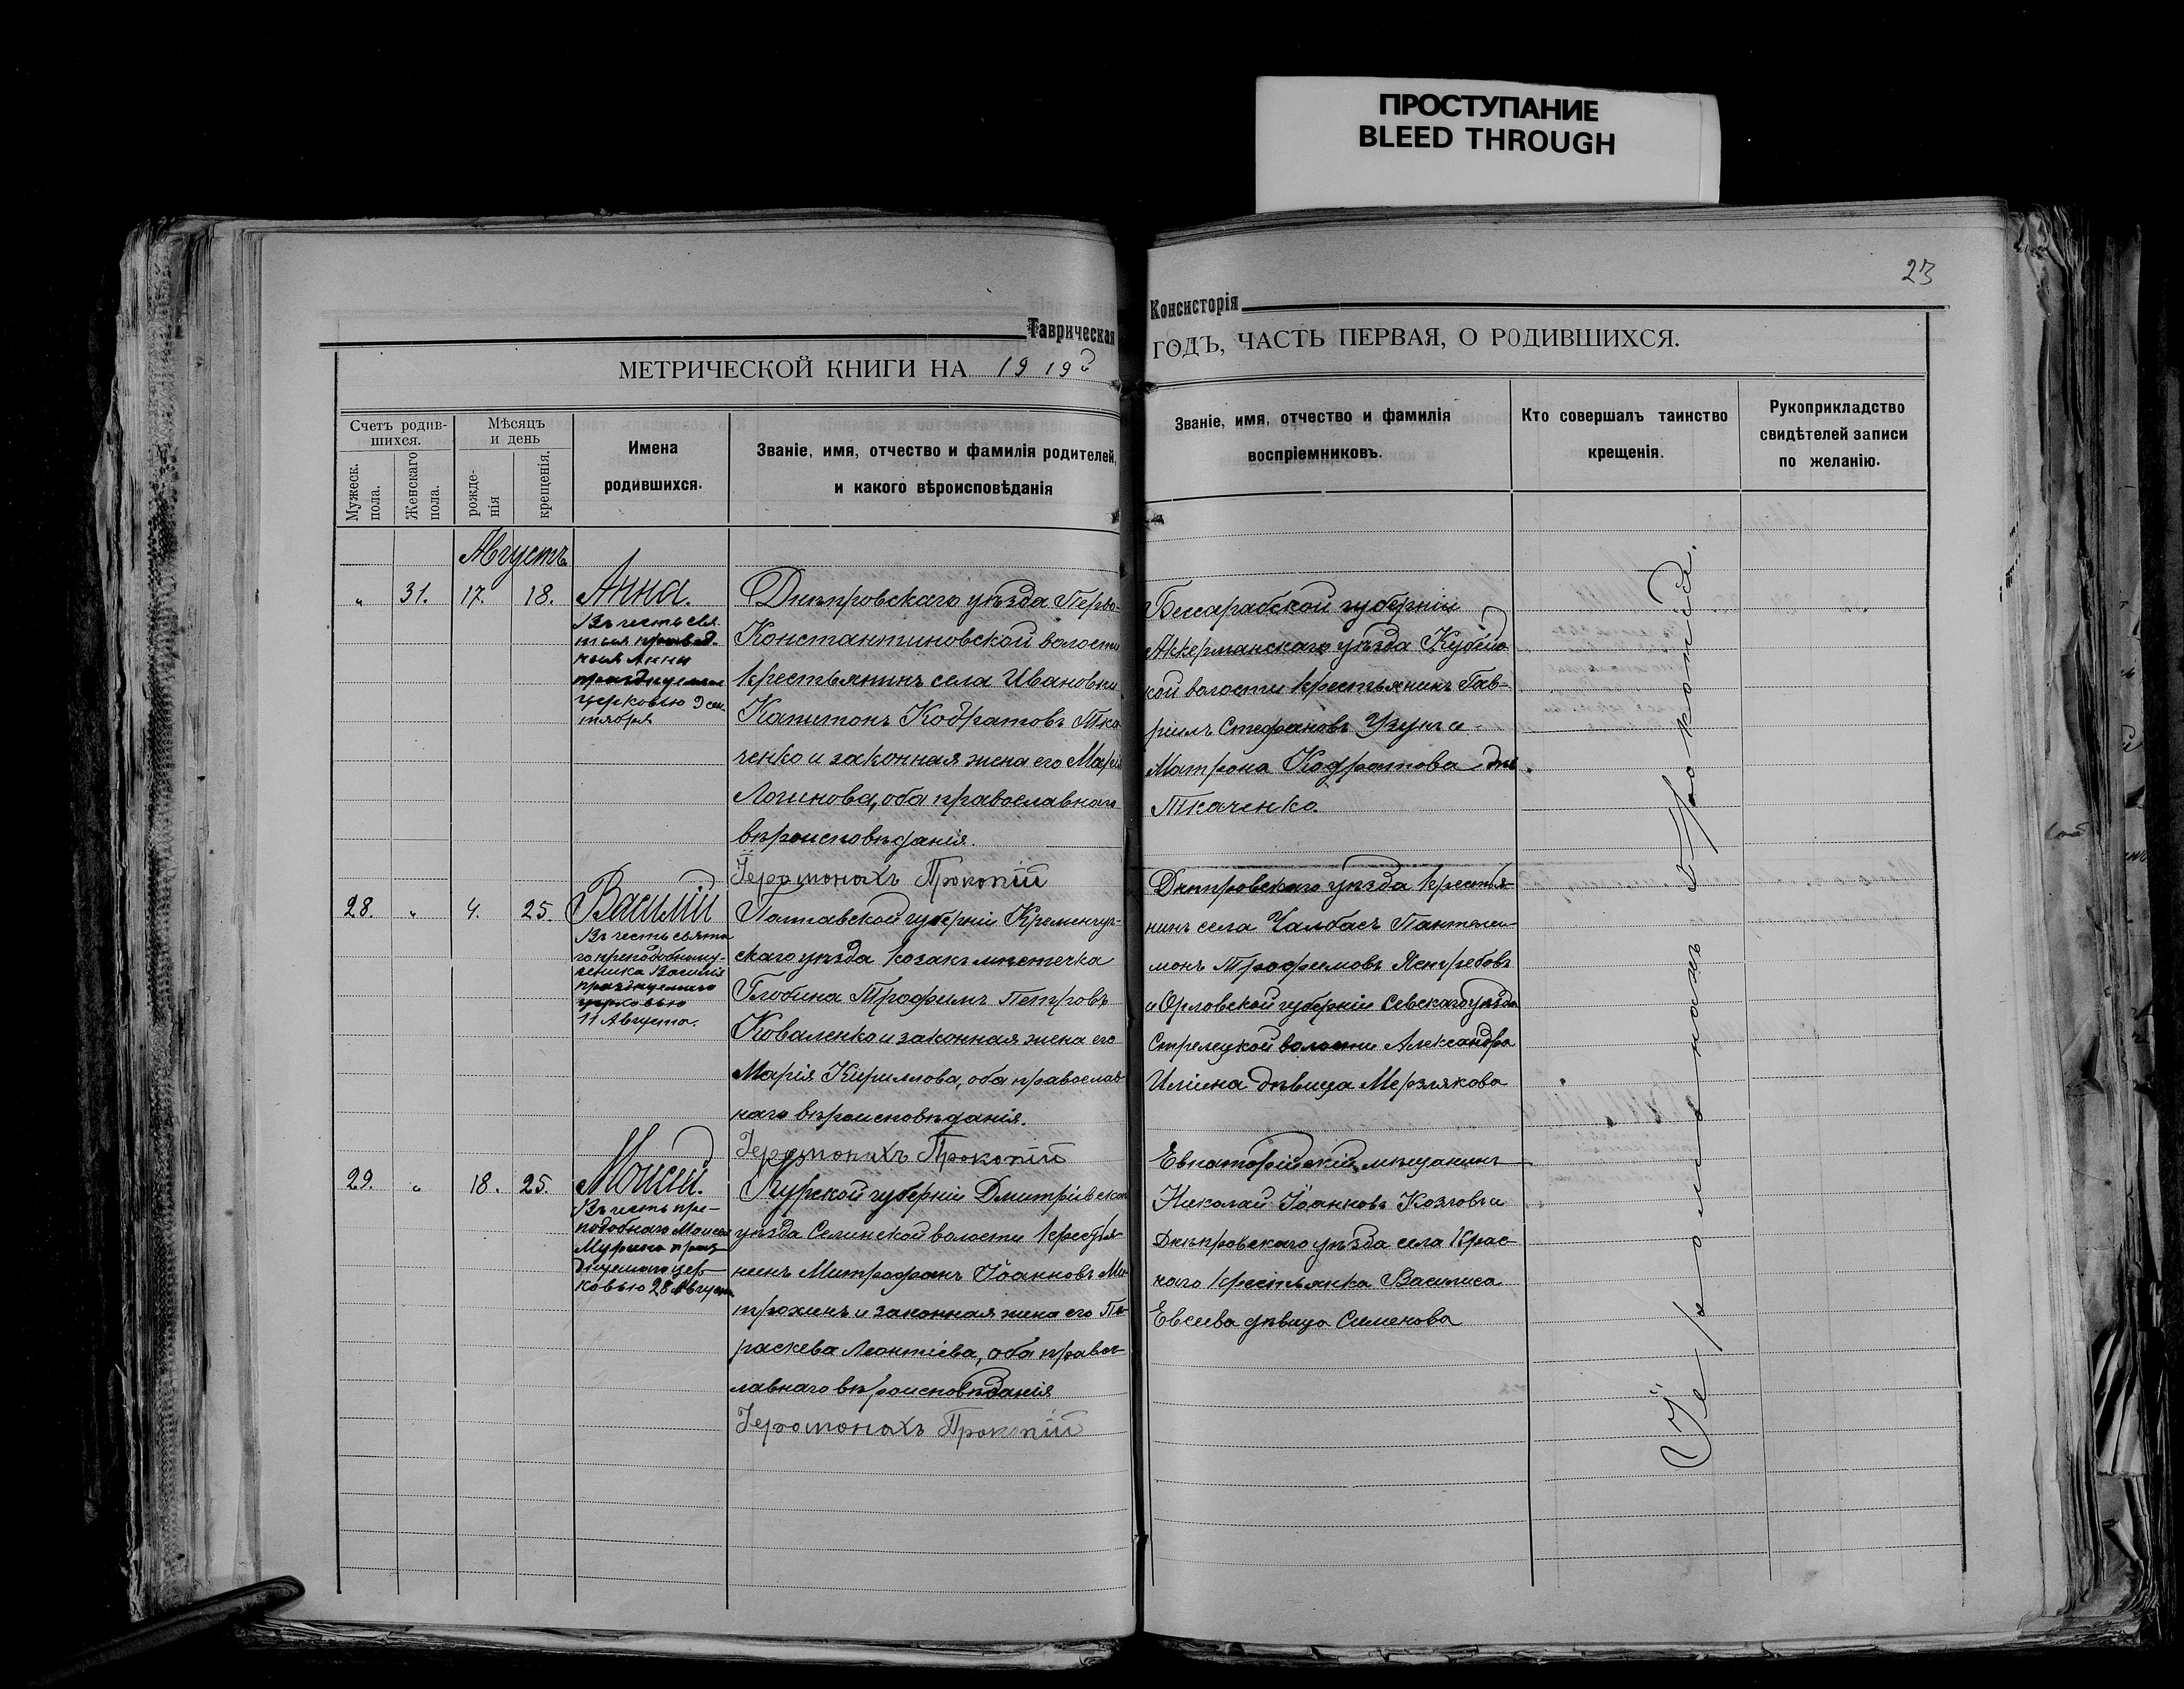 ПРОСТУПАНИЕ
BLEED THROUGH
23
Таврическая
Консисторія
МЕТРИЧЕСКОЙ КНИГИ НА 1919й
ГОДЪ, ЧАСТЬ ПЕРВАЯ, О РОДИВШИХСЯ.
Счетъ родив-
шихся.
Мужеск.
пола.
Женскаго
пола.
Мѣсяцъ
и день
рожде-
нія
крещенія.
Имена
родившихся.
Званіе, имя, отчество и фамилія родителей,
и какого вѣроисповѣданія
Званіе, имя, отчество и фамилія
воспріемниковъ.
Кто совершалъ таинство
крещенія.
Рукоприкладство
свидѣтелей записи
по желанію.
Августъ
„ 31. 17. 18.
Анна.
Въ честь свя
тыя правед-
ныя Анны
празднуемыя
церковью 9 сен
тября
Днѣпровскаго уѣзда Перво-
Константиновской волости
крестьянинъ села Ивановки
Капитонъ Кодратовъ Тка
ченко и законная жена его Марія
Логинова, оба православнаго
вѣроисповѣданія.
Іеромонахъ Прокопій
Бессарабской губерніи
Аккерманскаго уѣзда Кубей
кой волости крестьянинъ Гав-
ріилъ Стефановъ Узунъ и
Матрона Кодратова
Ткаченко.
28. „ 4. 25.
Василій
Въ честь свята
го преподобному-
ченика Василія
празднуемаго
церковью
11 Августа.
Полтавской губерніи Кременчуг-
скаго уѣзда козакъ мѣстечка
Глобина Трофимъ Петровъ
Коваленко и законная жена его
Марія Кириллова, оба православ
наго вѣроисповѣданія.
Іеромонахъ Прокопій
Днѣпровскаго уѣзда крестья-
нинъ села Чалбасъ Пантелей-
монъ Трофимовъ Ястребовъ
и Орловской губерніи Севскаго уѣзда
Стрелецкой волости Александра
Иліина дѣвица Мерзлякова
29. „ 18. 25.
Моисей.
Въ честь пре-
подобнаго Моисея
Мурина праз-
днуемаго цер-
ковью 28 Августа
Курской губерніи Дмитріевскаго
уѣзда Селинской волости крестья-
нинъ Митрофанъ Іоанновъ Ми-
трохинъ и законная жена его Па-
раскева Леонтіева, оба правос-
лавнаго вѣроисповѣданія
Іеромонахъ Прокопій
Евпаторійскій мѣщанинъ
Николай Іоанновъ Козловъ и
Днѣпровскаго уѣзда села Крас-
наго крестьянка Василиса
Евсеева дѣвица Семенова
Іеромонахъ Прокопій.